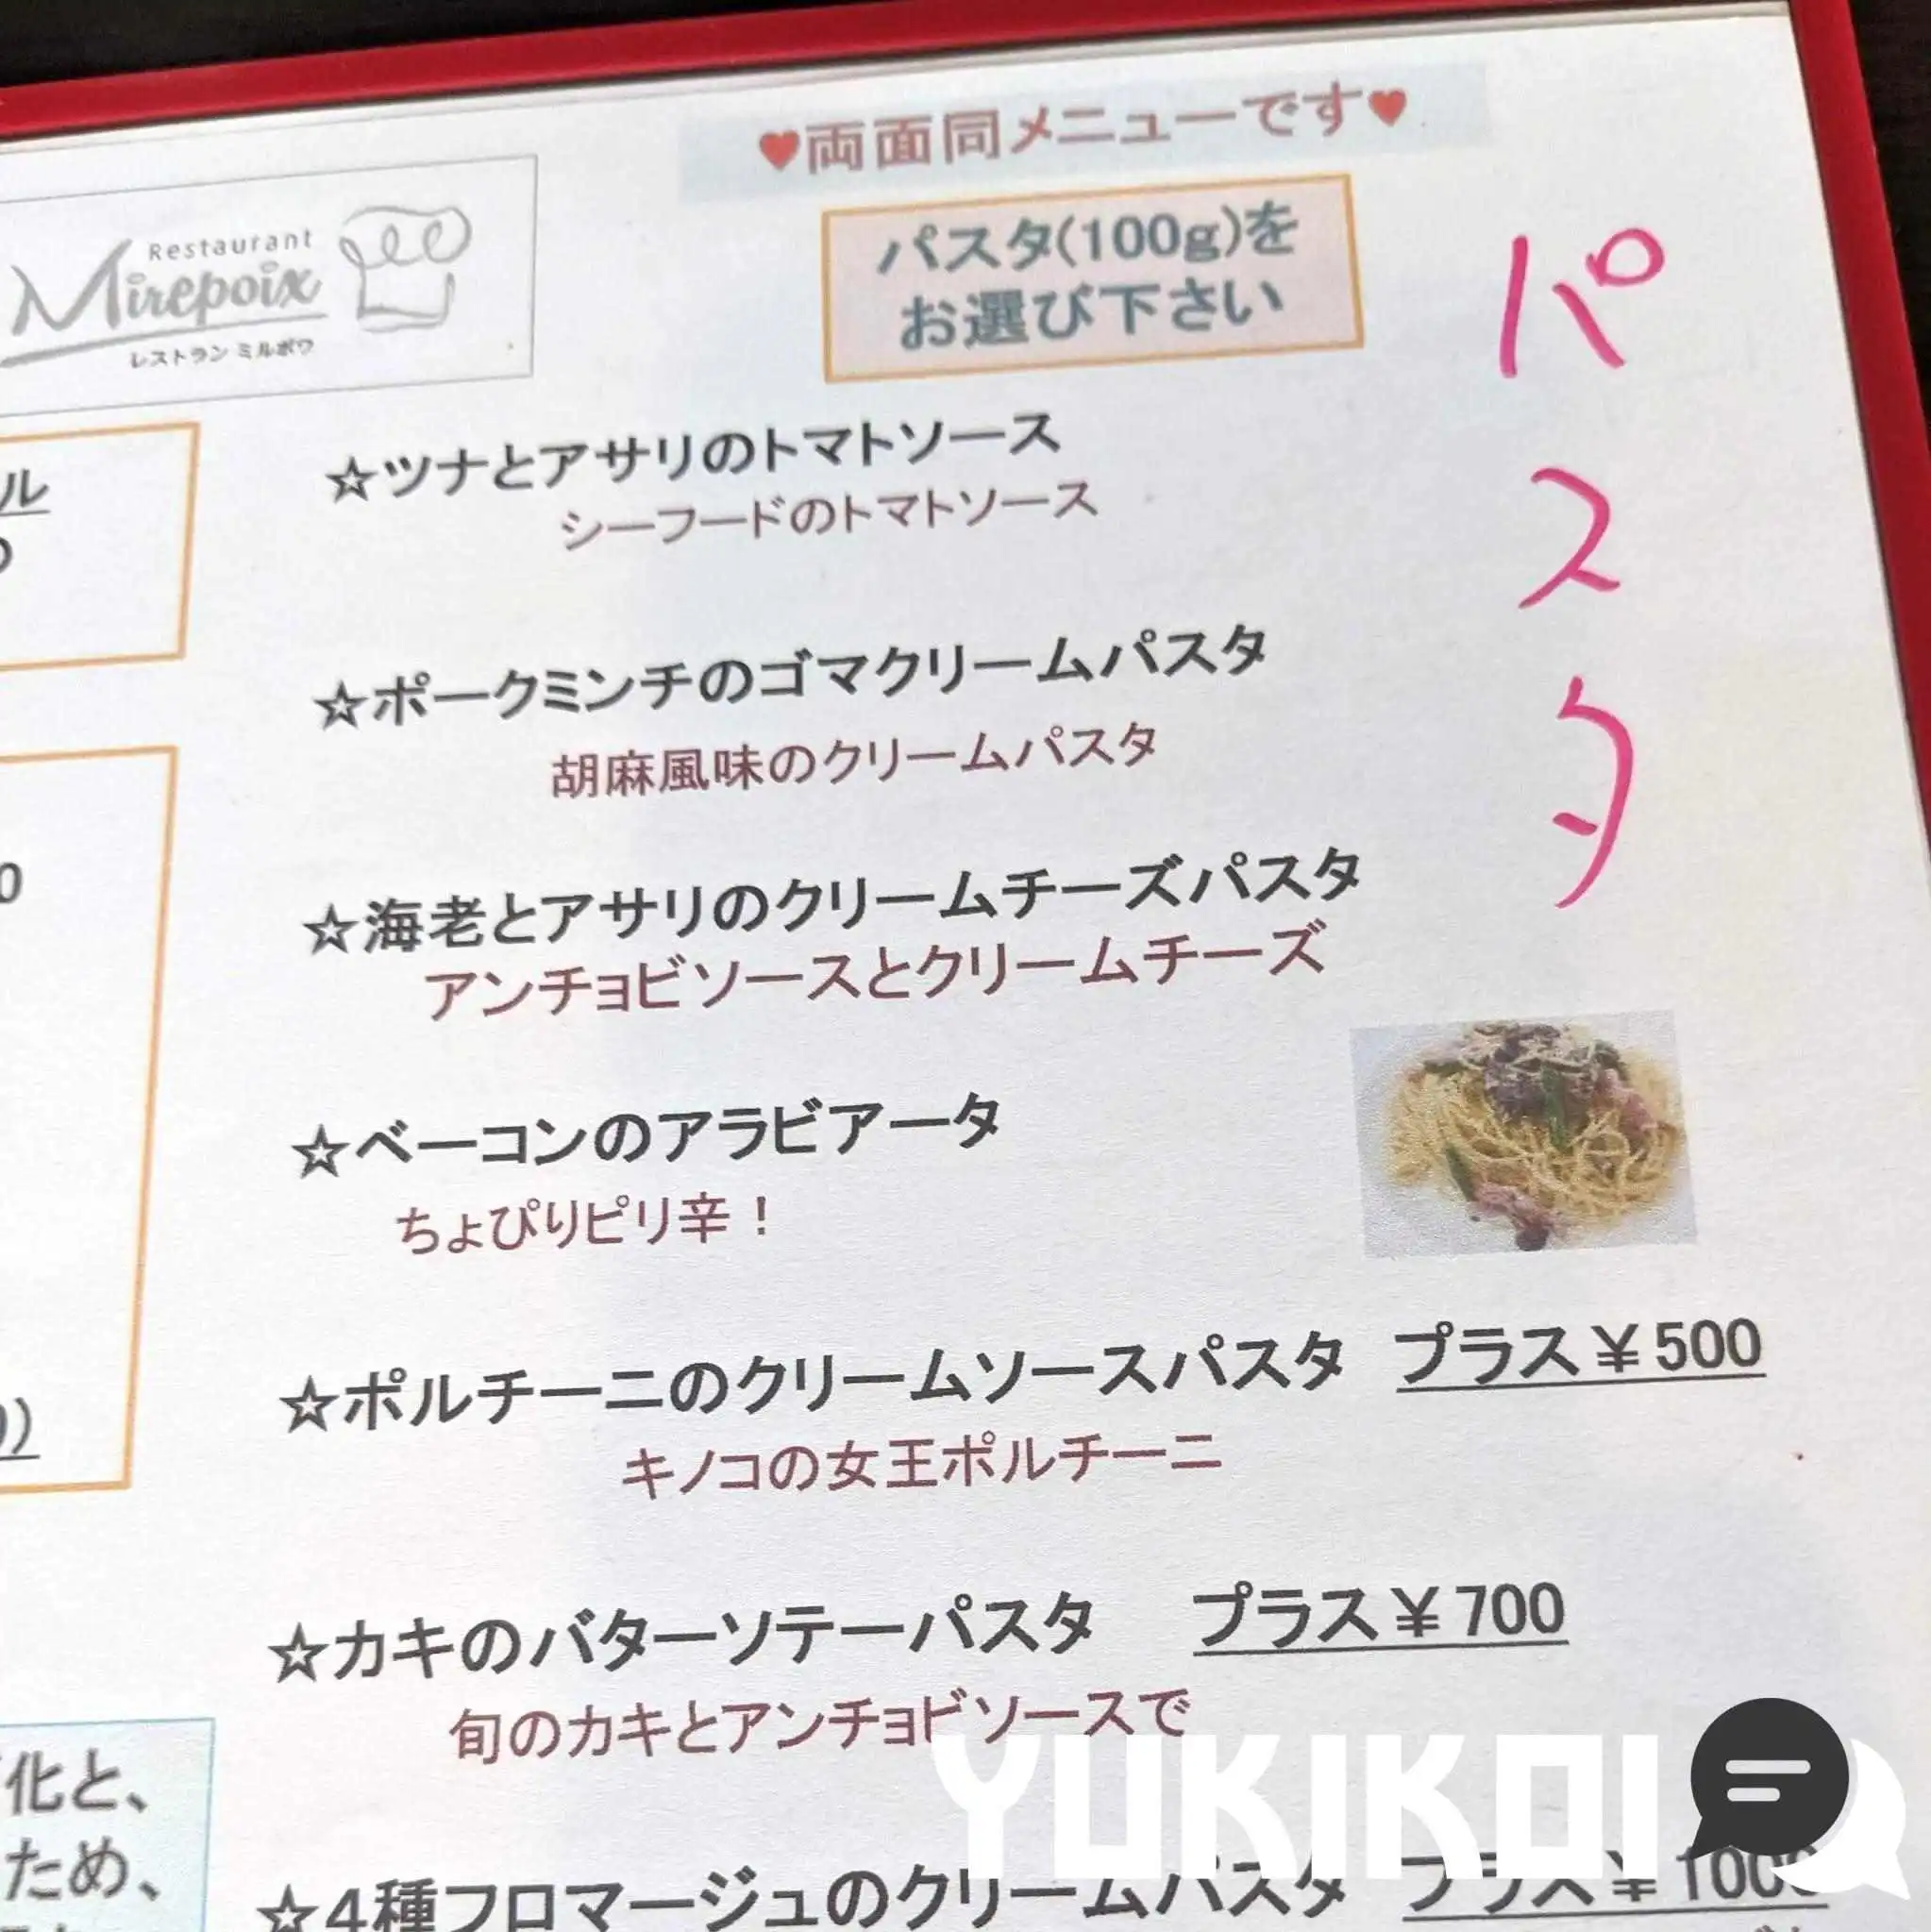 ♥両面同メニューです♥
Restaurant
Mirepoix
レストラン ミルポワ
パスタ(100g)を
お選び下さい
パスタ
☆ツナとアサリのトマトソース
シーフードのトマトソース
☆ポークミンチのゴマクリームパスタ
胡麻風味のクリームパスタ
☆海老とアサリのクリームチーズパスタ
アンチョビソースとクリームチーズ
☆ベーコンのアラビアータ
ちょぴりピリ辛！
☆ポルチーニのクリームソースパスタ プラス￥500
キノコの女王ポルチーニ
☆カキのバターソテーパスタ プラス￥700
旬のカキとアンチョビソースで
☆4種フロマージュのクリームパスタ プラス￥1000
ル
0
化と、
ため、
YUKIKOI